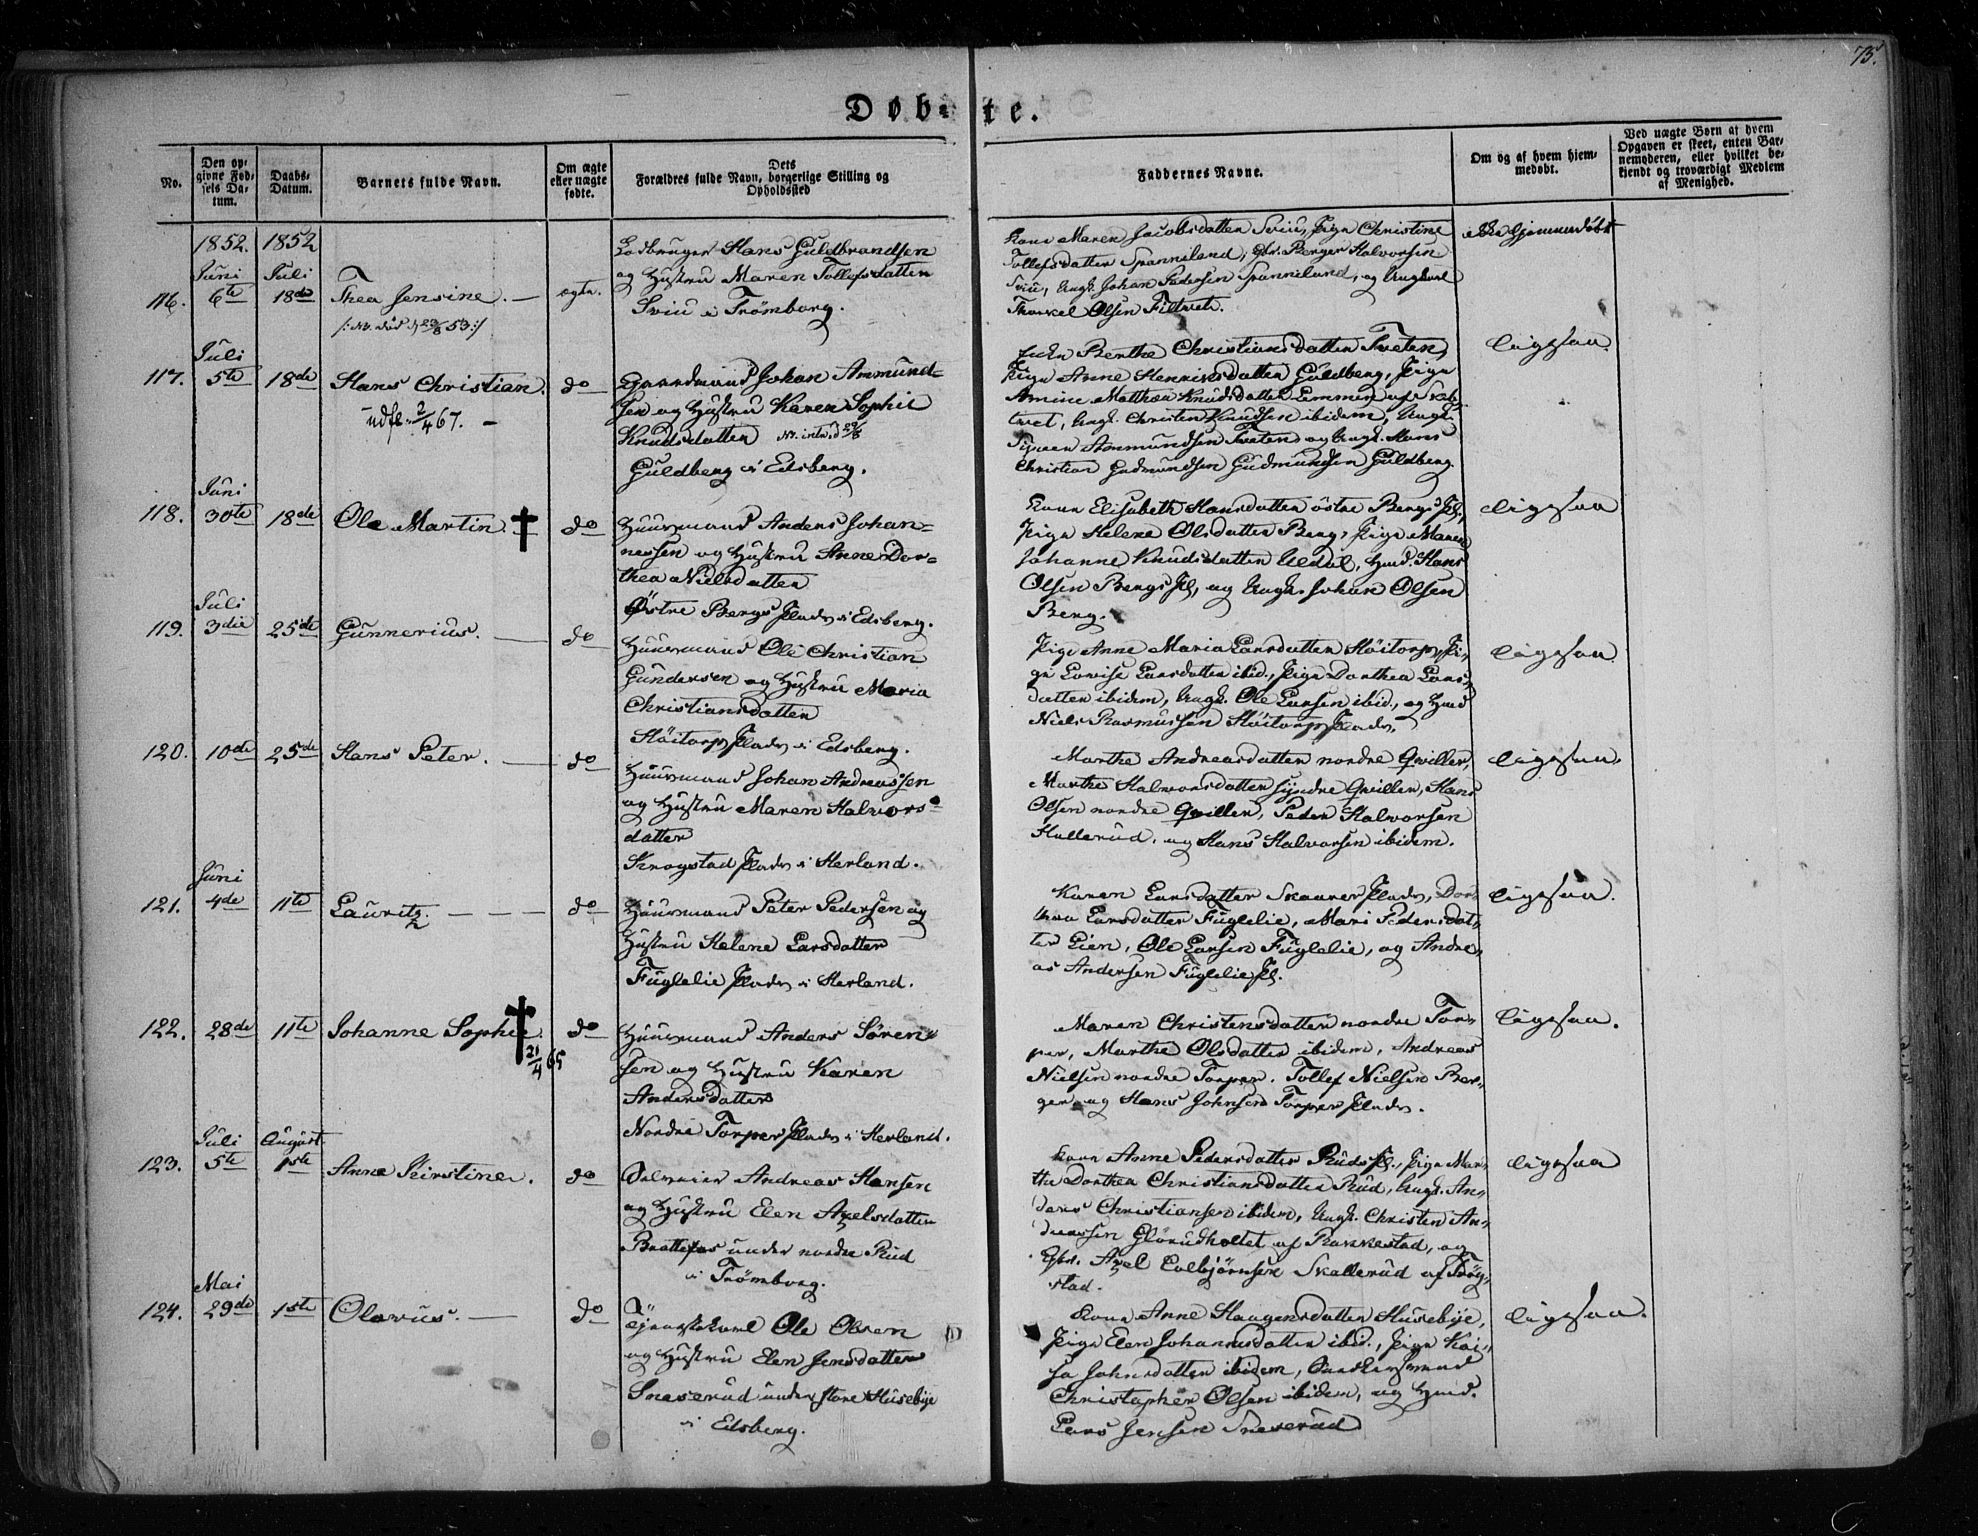 75.
Døb- te.
No.
Den opgivne Fødsels Datum.
Daabs-Datum.
Barnets fulde Navn.
Om ægte eller uægte fødte.
Dets Forældres fulde Navn, borgerlige Stilling og Opholdssted
Faddernes Navne.
Om og af hvem hjemmedøbt.
Ved uægte Børn af hvem Opgaven er skeet, enten Barnemoderen, eller hvilket bekjendt og troværdigt Medlem af Menighed.
1852. 1852
Juni Juli
116. 6te 18de Thea Jensine. ægte.
Hans Guldbrandsen
og Hustru Maren Tollefsdatter
Sviu i Trømborg.
Kone Maren Jacobsdatter Sviu, Pige Christine
Tollefsdatter Spanniland, Gbr. Berger Halvorsen
Sviu, Ungk. Johan Pedersen Spanniland, og Ungkarl
Thorkel Olsen Filtvet.
ikke hjemmedøbt
Juli
117. 5te 18de Hans Christian. do
udfl. 2/4 67.
Gaardmand Johan Ammund-
sen og Hustru Karen Sophie
Knudsdatter
Guldberg i Edsberg.
Enke Berthe Christiansdatter Tveten,
Pige Anne Henriksdatter Guldberg, Pige
Amine Mathea Knudsdatter
Ungk. Christen Knudsen ibidem, Ungk.
Ammundsen Tveten og Ungk. Hans
Christian Gudmundsen Gudmundsen Guldberg.
ligesaa.
Juni
118. 30te 18de Ole Martin. do
Huusmand Anders Johan-
nessen og Hustru Anne Dor-
thea Nielsdatter
Østre Bergs Plads i Edsberg.
Kone Elisabeth Hansdatter østre Bergs Pl.,
Pige Helene Olsdatter Berg, Pige Maren
Johanne Knudsdatter Uldal, Hmd. Hans
Olsen Bergs Pl., og Ungk. Johan Olsen
Berg.
ligesaa
Juli
119. 3die 25de Gunnerius. do
Huusmand Ole Christian
Gundersen og Hustru Maria
Christiansdatter
Høitorp Plads i Edsberg.
Pige Anne Maria Larsdatter Høitorp, Pi-
ge Lovise Larsdatter ibid., Pige Dorthea Lars-
datter ibidem, Ungk. Ole Larsen ibid., og Hmd
Niels Rasmussen Høitorp Plads.
ligesaa
120. 10de 25de Hans Peter. do
Huusmand Johan Andreassen
og Hustru Maren Halvors-
datter
Krogstad Plads i Herland.
Marthe Andreasdatter nordre Qviller,
Marthe Halvorsdatter syndre Qviller, Hans
Olsen nordre Qviller, Peder Halvorsen
Hallerud, og Hans Halvorsen ibidem.
ligesaa.
Juni
121. 4de 11te Lauritz. do
Huusmand Peter Pedersen og
Hustru Helene Larsdatter
Fuglelie Plads i Herland.
Karen Larsdatter Skaarer Plads, Dor-
thea Larsdatter Fuglelie, Mari Pedersdat-
ter Lien, Ole Larsen Fuglelie, og Andre-
as Andersen Fuglelie Pl.
ligesaa.
122. 28de 11te Johanne Sophie. do
21/4 65
Huusmand Anders Søren-
sen og Hustru Karen
Andersdatter
Nordre Torper Plads i Herland.
Maren Christensdatter nordre Tor-
per, Marthe Olsdatter ibidem, Andreas
Nielsen nordre Torper. Tollef Nielsen Ber-
ger og Hans Johnsen Torper Plads.
ligesaa.
Juli August
123. 5te 1ste Anne Kirstine. do
Andreas Hansen
og Hustru Elen Axelsdatter
Brattefos under nordre Rud
i Trømborg.
Kone Anne Pedersdatter Ruds Pl., Pige Mar-
the Dorthea Christiansdatter Rud, Ungk. An-
ders Christiansen ibidem, Ungk. Christen An-
dreassen Glørudholtet af Rakkestad, og
Gbr. Axel Colbjørnsen Skallerud af Trøg-
stad.
ligesaa
Mai
124. 29de 1ste Olavus. do
Tjenestekarl Ole Olsen
og Hustru Elen Jensdatter
Sneserud under store Husebye
i Edsberg.
Kone Anne Haagensdatter Husebye,
Pige Elen Johannsdatter ibid., Pige Kai-
sa Johnsdatter ibidem,
Christopher Olsen ibidem, og Hmd.
Lars Jensen Sneserud
ligesaa.